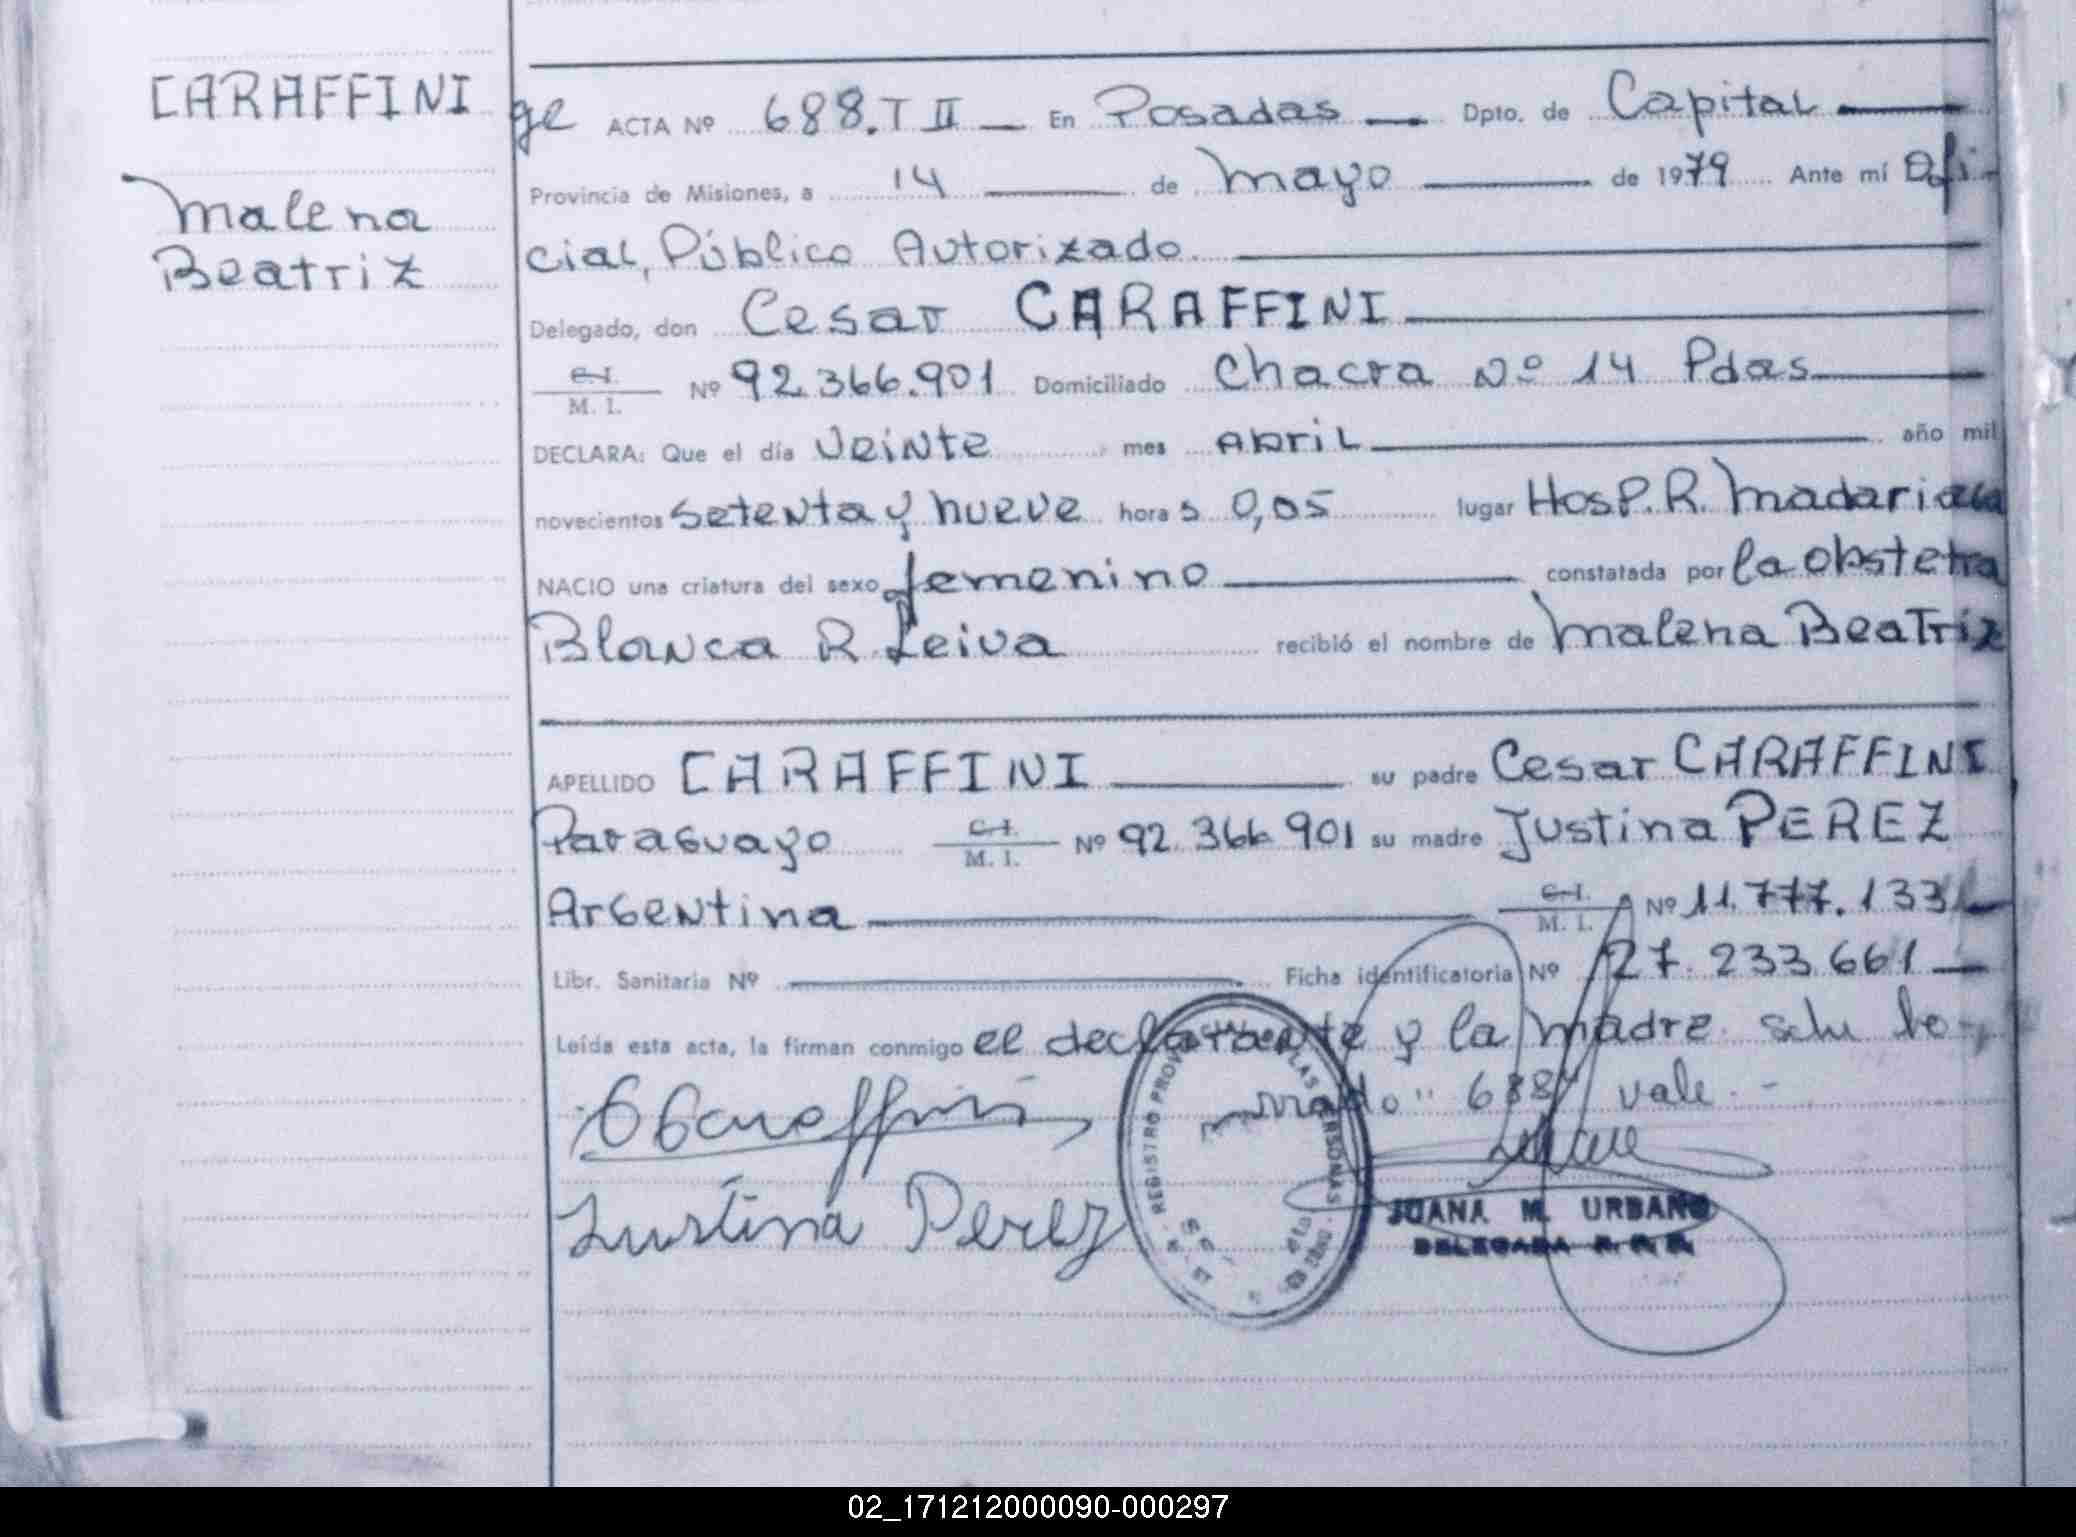 CARAFFINI
Malena
Beatriz
ge ACTA Nº 688.T II En Posadas Dpto. de Capital
Provincia de Misiones, a 14 de Mayo de 1979 Ante mí Ofi-
cial, Público Autorizado.
Delegado, don Cesar CARAFFINI
C.I. M. I. Nº 92.366.901 Domiciliado Chacra Nº 14 Pdas
DECLARA: Que el día Veinte mes Abril año mil
novecientos setenta y nueve hora s 0,05 lugar Hosp. R. Madariaga
NACIO una criatura del sexo femenino constatada por la obstetra
Blanca R. Leiva recibió el nombre de Malena Beatriz
APELLIDO CARAFFINI su padre Cesar CARAFFINI
Paraguayo C.I. M. I. Nº 92.366.901 su madre Justina PEREZ
Argentina C.I. M. I. Nº 11.777.133
Libr. Sanitaria Nº Ficha identificatoria Nº 27.233.661
Leída esta acta, la firman conmigo el declarante y la madre.
"688" vale.-
Justina Perez
REGISTRO PROV. DE LAS PERSONAS
JUANA M. URBANO
DELEGADA R. P. P.
02_171212000090-000297